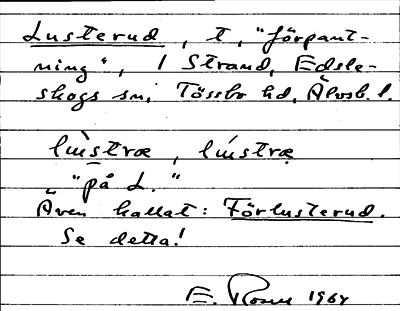 Lusterud, t, "förpant-
ning", 1 Strand, Edsle-
skogs sn, Tössbo hd, Älvsb. l.
lùstræ, lústræ
"på L."
Även kallat: Förlusterud.
Se detta!
E. Rosen 1964